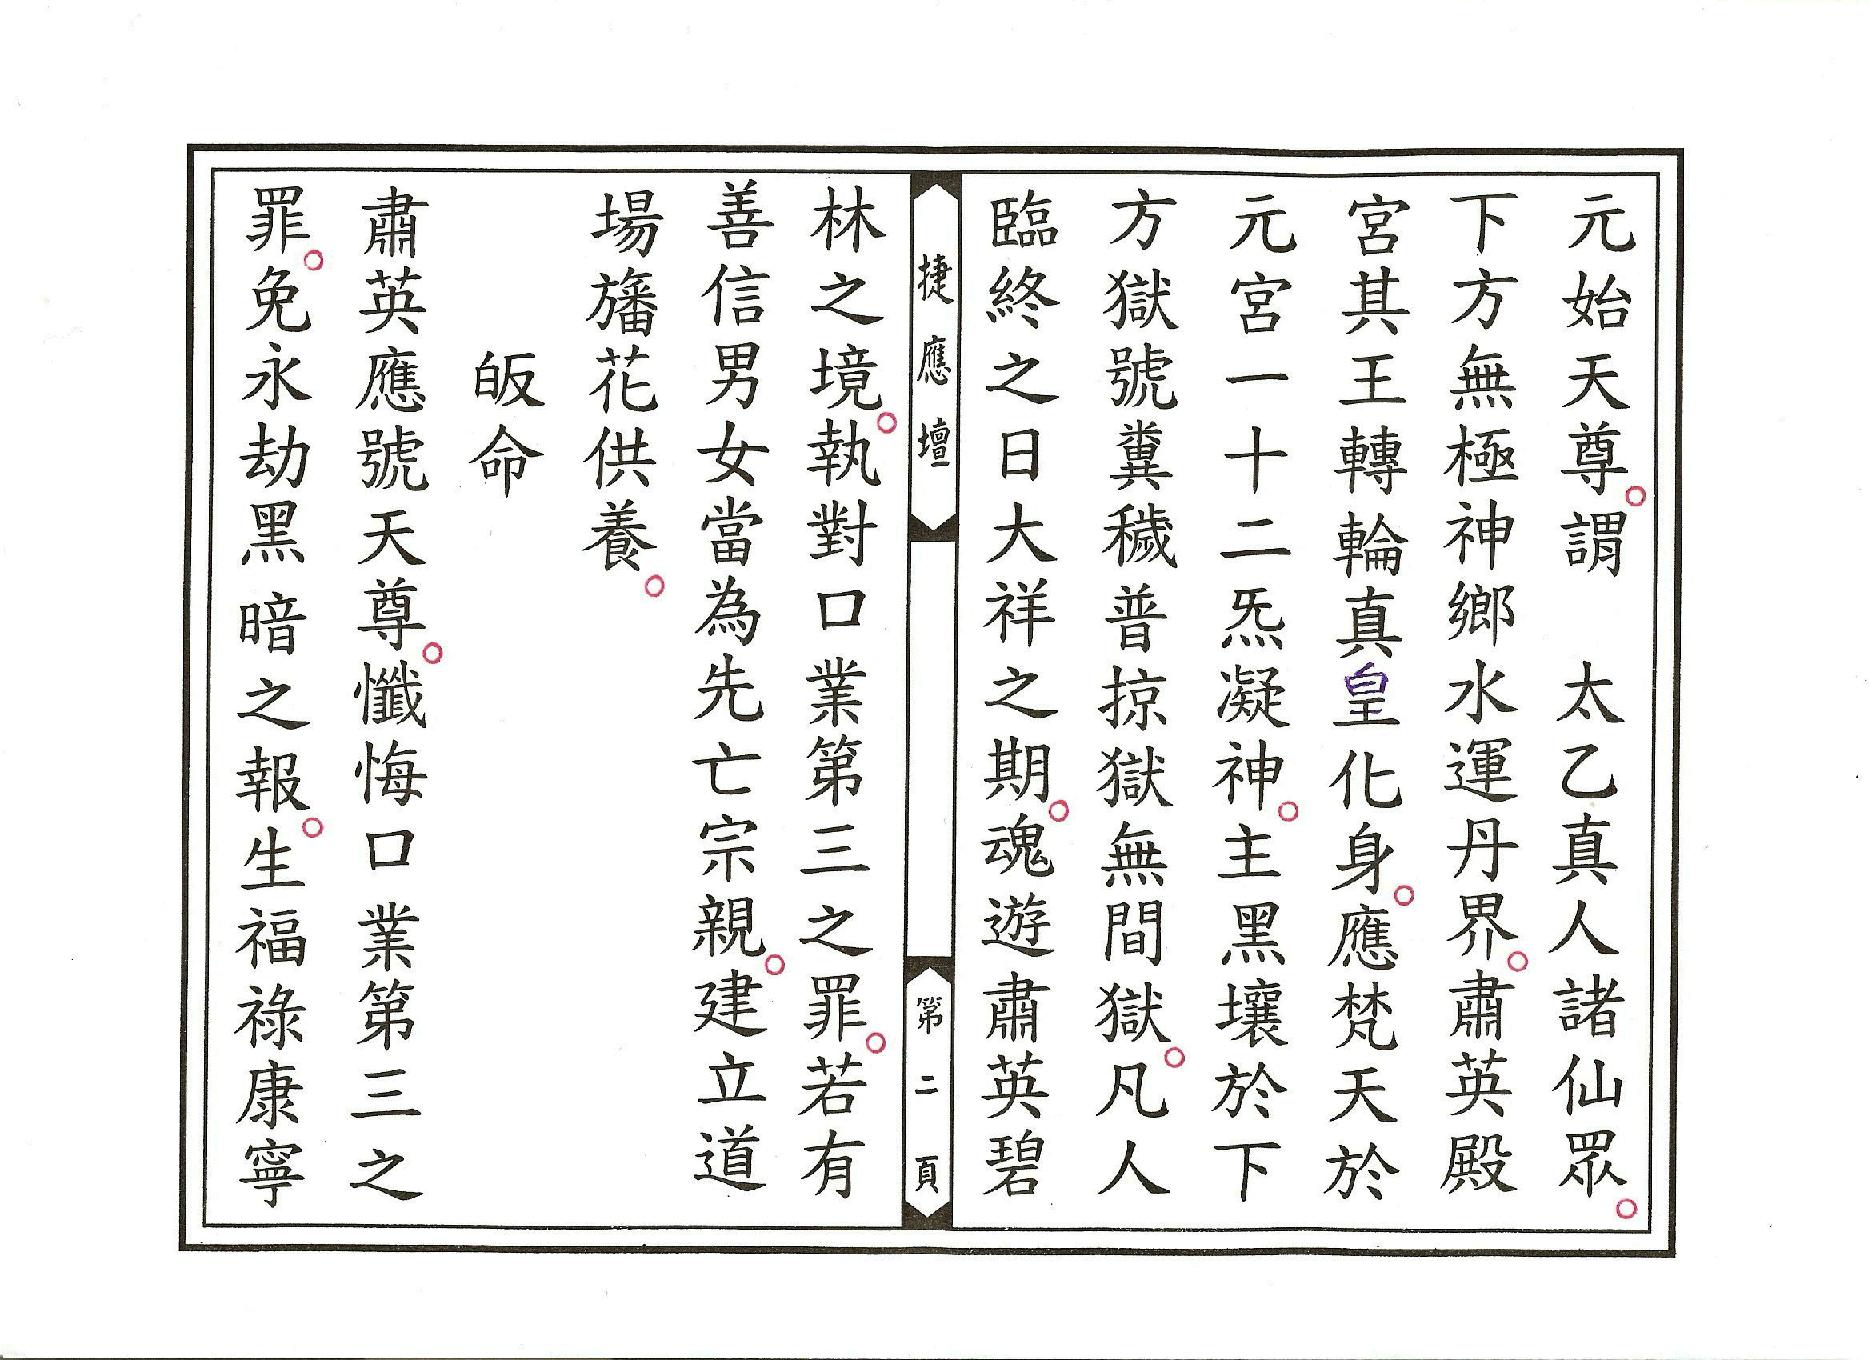 元始天尊。謂　太乙真人諸仙眾。
下方無極神鄉水運丹界。肅英殿
宮其王轉輪真皇化身。應梵天於
元宮一十二炁凝神。主黑壤於下
方獄號糞穢普掠獄無間獄。凡人
臨終之日大祥之期。魂遊肅英碧
捷應壇
第二頁
林之境。執對口業第三之罪。若有
善信男女當為先亡宗親。建立道
場旛花供養。
皈命
肅英應號天尊。懺悔口業第三之
罪。免永劫黑暗之報。生福祿康寧